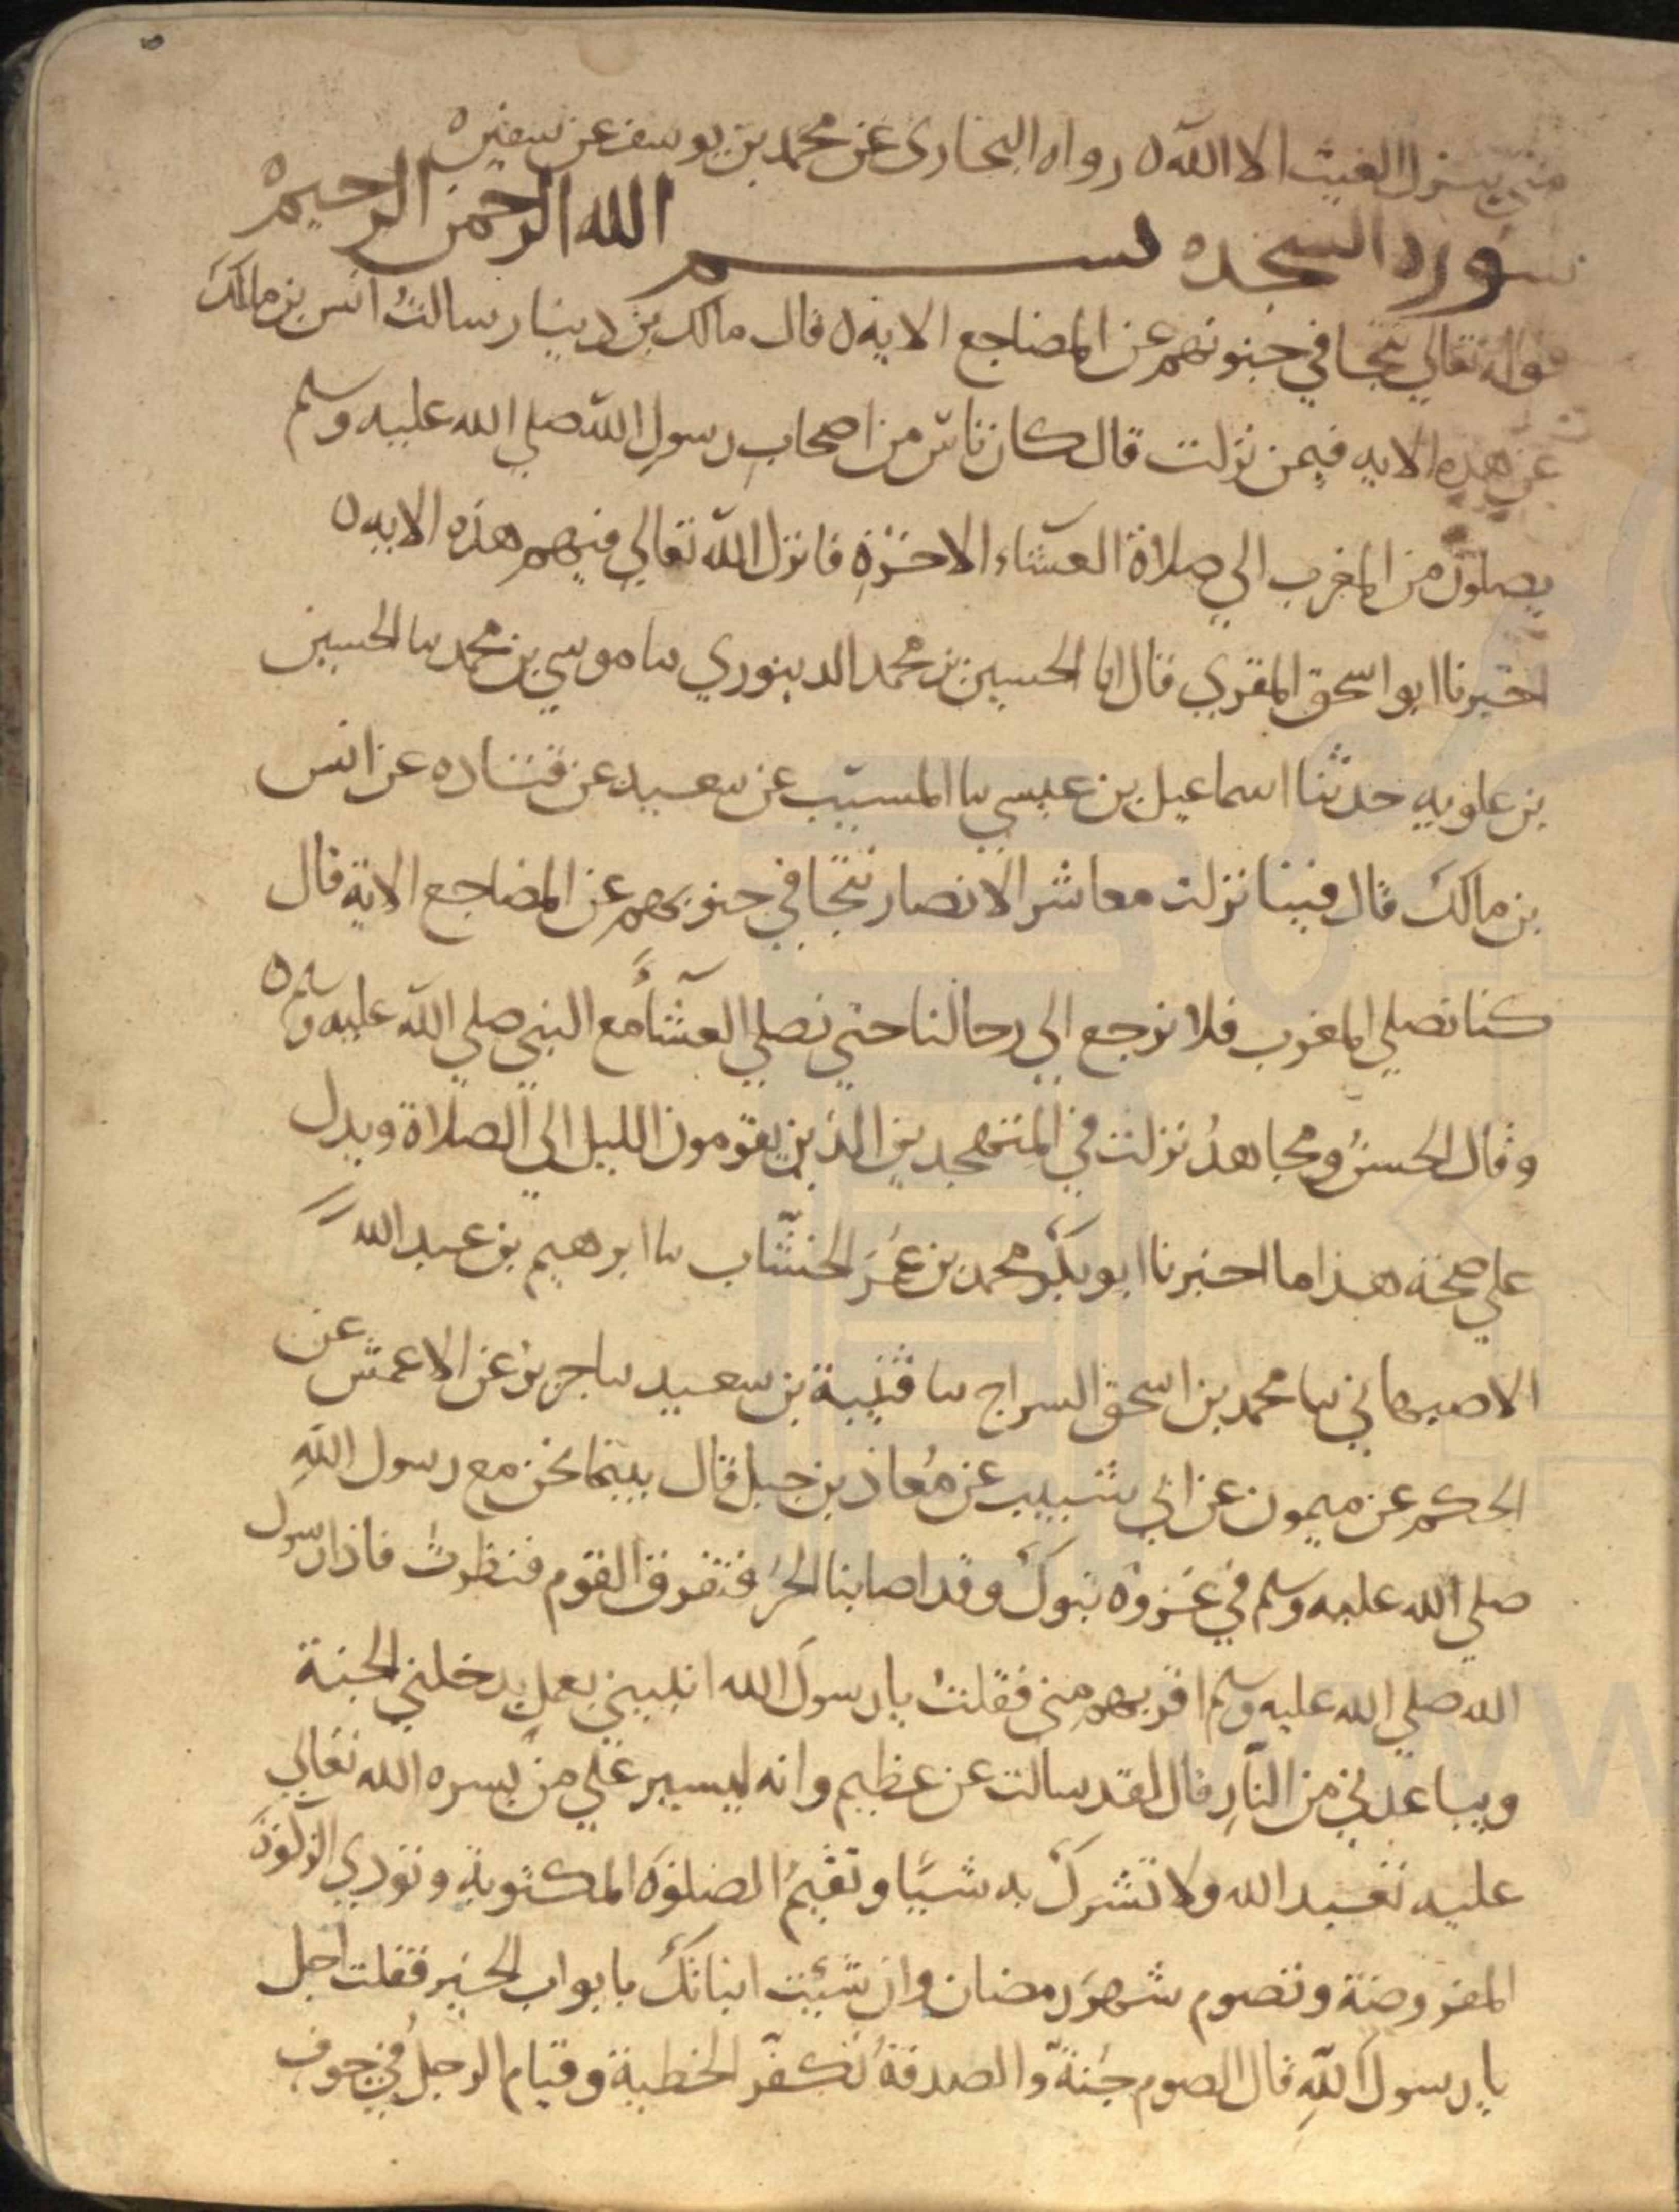 متى ينزل الغيث الا الله ه رواه البخارى عن محمد بن يوسف عن سفين ه
سورة السجده بسم الله الرحمن الرحيم
قوله تعالي تتجافي جنوبهم عن المضاجع الايه ه قال مالك بن دينار سالت انس بن مالك
عن هذه الايه فيمن نزلت قال كان ناس من اصحاب رسول الله صلي الله عليه وسلم
يصلون من المغرب الي صلاة العشاء الاخرة فانزل الله تعالي فيهم هذه الايه ه
اخبرنا ابو اسحق المقري قال انا الحسين بن محمد الدينوري سا موسي بن محمد سا الحسين
بن علويه حدثنا اسماعيل بن عيسي سا المسيب عن سعيد عن قتاده عن انس
بن مالك قال فينا نزلت معاشر الانصار تتجافي جنوبهم عن المضاجع الاية قال
كنا نصلي المغرب فلا نرجع الي رحالنا حتي نصلي العشآء مع النبي صلي الله عليه وسلم ه
وقال الحسن ومجاهد نزلت في المتهجدين الذين يقومون الليل الي الصلاة ويدل
علي صحة هذا ما اخبرنا ابو بكر محمد بن عمر الخشاب سا ابرهيم بن عبد الله
الاصبهاني سا محمد بن اسحق السراج سا قتيبة بن سعيد سا جرير عن الاعمش عن
الحكم عن ميمون عن ابي شبيب عن معاذ بن جبل قال بينما نحن مع رسول الله
صلي الله عليه وسلم في غزوه تبوك وقد اصابنا الحر فتفرق القوم فنظرت فاذا رسول
الله صلي الله عليه وسلم اقربهم مني فقلت يا رسول الله انبيني بعمل يدخلني الجنة
ويباعدني من النار قال لقد سالت عن عظيم وانه ليسير علي من يسره الله تعالي
عليه تعبد الله ولا تشرك به شيًا وتقيم الصلوة المكتوبة وتودي الزكوة
المفروضة وتصوم شهر رمضان وان شئت انباتك بابواب الخير فقلت اجل
يا رسول الله قال الصوم جنة والصدقة تكفر الخطية وقيام الرجل في جوف